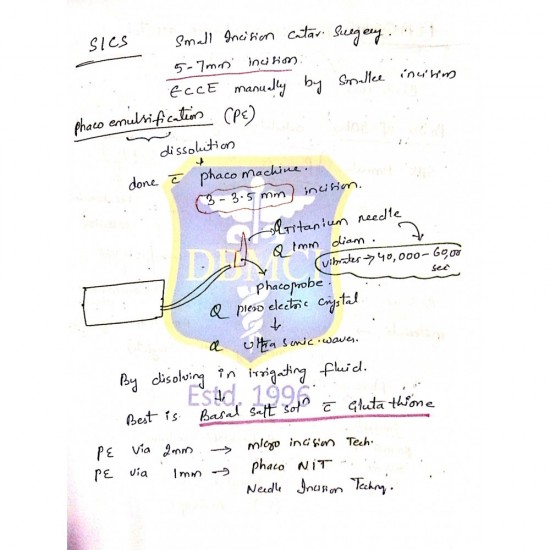 SICS Small Incision Catar. Surgery.
5-7mm incision
ECCE manually by smaller incision
phaco emulsification (PE)
dissolution
done c̄ phaco machine.
3 - 3.5 mm incision.
titanium needle
1mm diam.
vibrates → 40,000 - 60,00
sec
phacoprobe.
Q piezo electric crystal
↓
Q ultra sonic waves
DBMCI
By disolving in irrigating fluid.
Estd. 1996
Best is Basal salt solⁿ c̄ Glutathione
PE via 2mm → micro incision Tech.
PE via 1mm → phaco NIT
Needle Incision Techq.